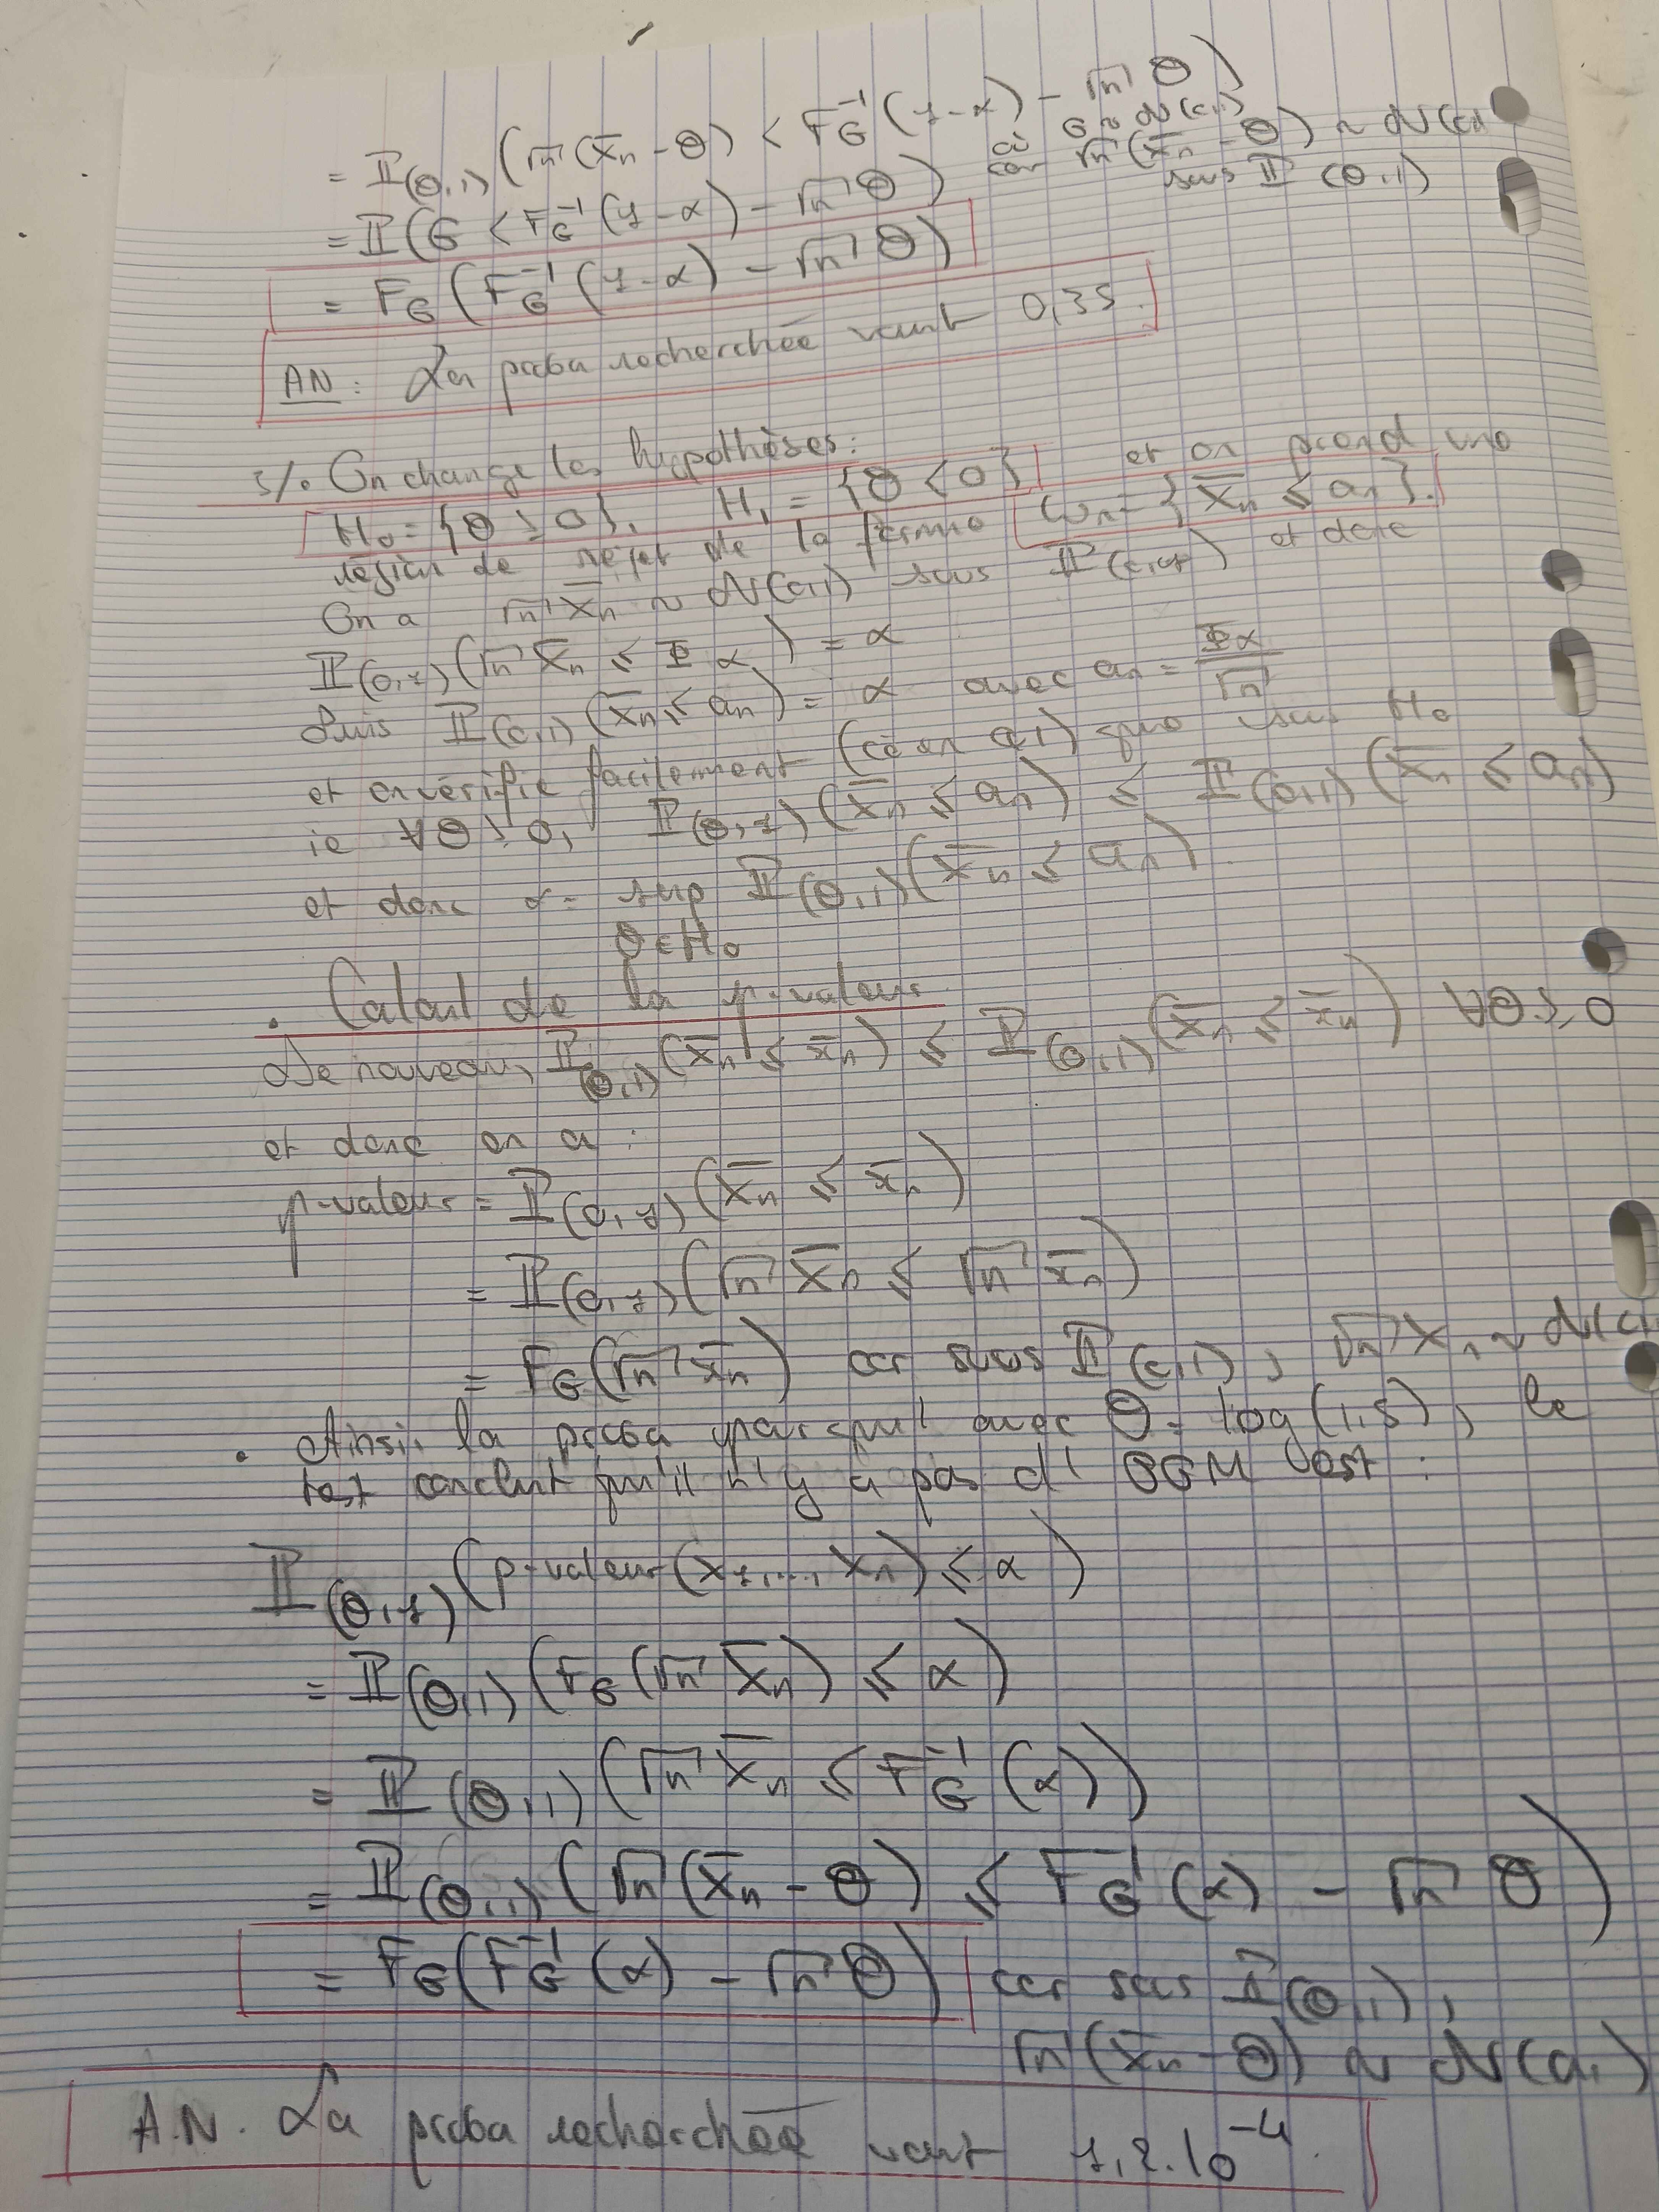 = ℙ(θ,1) (√n (X̄n - θ) < F_G^{-1} (1-α) - √n θ)
= ℙ(G < F_G^{-1} (1-α) - √n θ) où G ~ N(0,1)
car √n (X̄n - θ) ~ N(0,1
sous ℙ(θ,1)
= F_G (F_G^{-1} (1-α) - √n θ)
AN : La proba recherchée vaut 0,35.
3/. On change les hypothèses :
H0 = {θ ≥ 0}, H1 = {θ < 0} et on prend une
région de rejet de la forme ωn = {X̄n ≤ an}.
On a √n X̄n ~ N(0,1) sous ℙ(0,1) et donc
ℙ(0,1) (√n X̄n ≤ Φα) = α
Puis ℙ(0,1) (X̄n ≤ an) = α avec an = Φα/√n
et on vérifie facilement (cè an q1) que sous H0
ie ∀θ ≥ 0, ℙ(θ,1) (X̄n ≤ an) ≤ ℙ(0,1) (X̄n ≤ an)
et donc α = sup ℙ(θ,1) (X̄n ≤ an)
θ∈H0
. Calcul de la p-valeur
De nouveau, ℙ(θ,1) (X̄n ≤ x̄n) ≤ ℙ(0,1) (X̄n ≤ x̄n) ∀θ ≥ 0
et donc on a :
p-valeur = ℙ(0,1) (X̄n ≤ x̄n)
= ℙ(0,1) (√n X̄n ≤ √n x̄n)
= F_G (√n x̄n) car sous ℙ(0,1), √n X̄n ~ N(0,
. Ainsi, la proba pour qu' avec θ = log(1,5), le
test conclut qu'il n'y a pas d' OGM est :
ℙ(θ,1) (p-valeur (X1,..., Xn) ≤ α)
= ℙ(θ,1) (F_G (√n X̄n) ≤ α)
= ℙ(θ,1) (√n X̄n ≤ F_G^{-1} (α))
= ℙ(θ,1) (√n (X̄n - θ) ≤ F_G^{-1} (α) - √n θ)
= F_G (F_G^{-1} (α) - √n θ) car sous ℙ(θ,1),
√n (X̄n - θ) ~ N(0,1)
A.N. La proba recherchée vaut 1,2.10^{-4}.